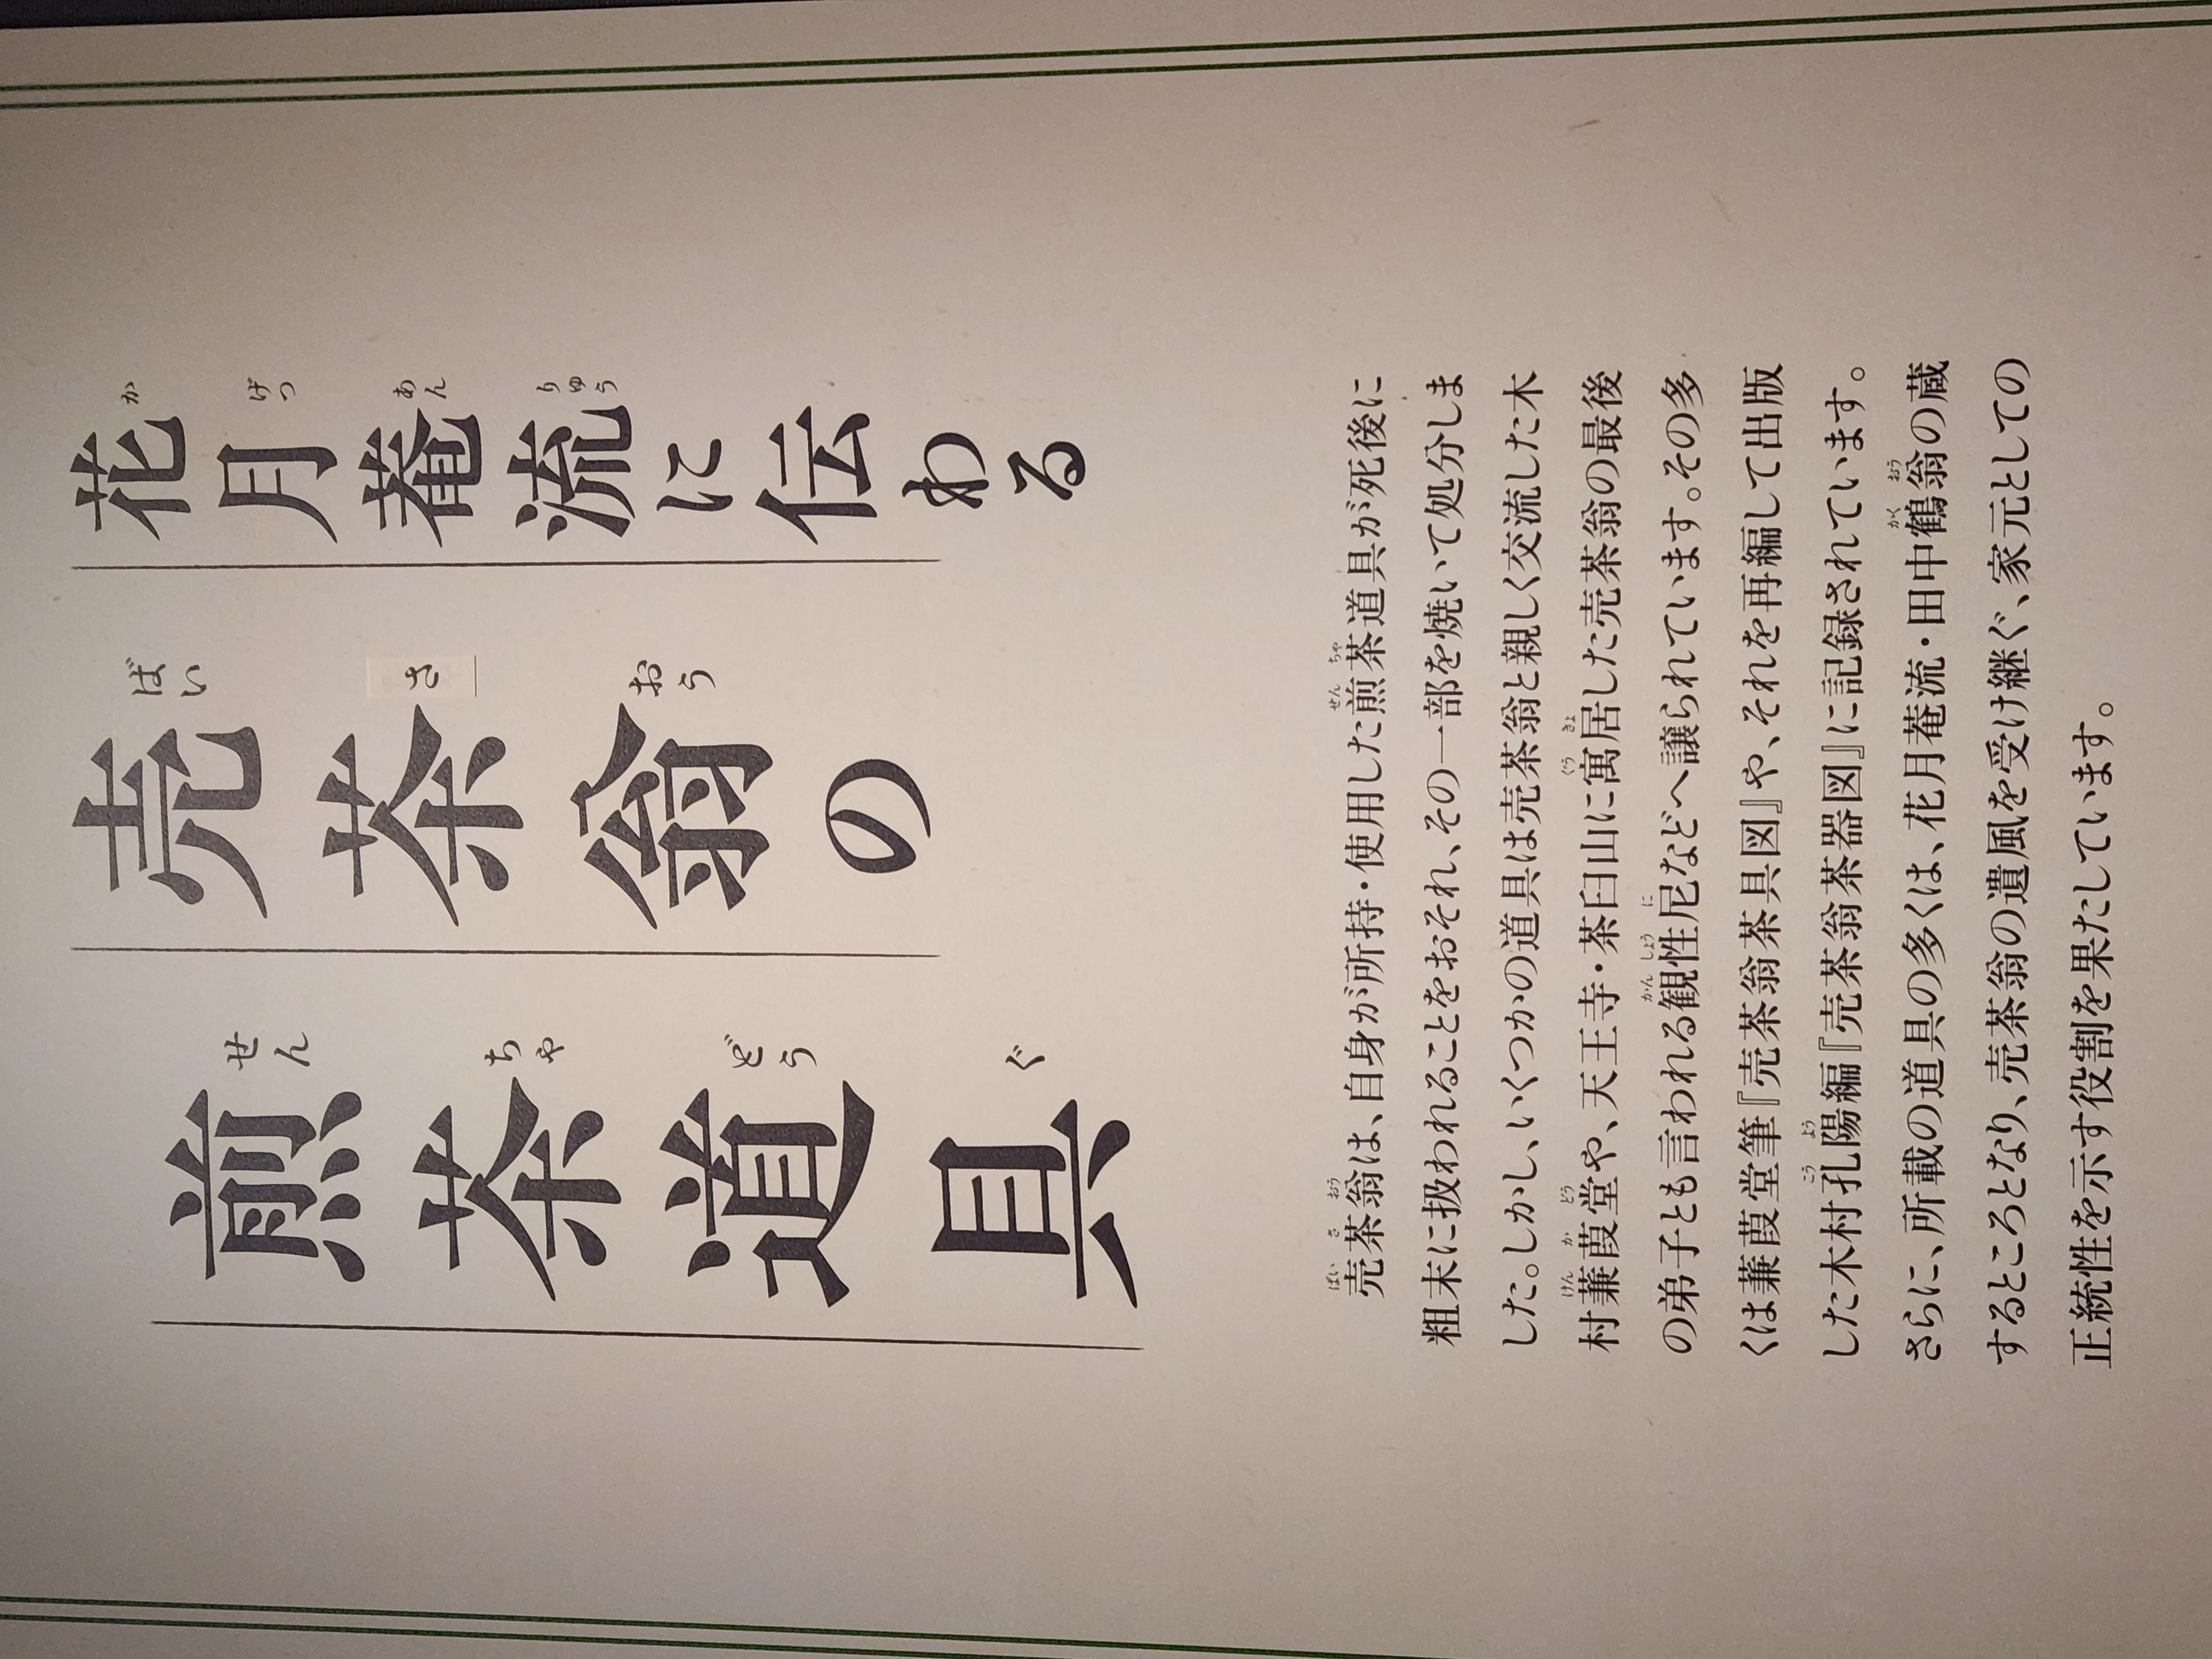 花月菴流に伝わる
売茶翁の
煎茶道具
売茶翁は、自身が所持・使用した煎茶道具が死後に
粗末に扱われることをおそれ、その一部を焼いて処分しま
した。しかし、いくつかの道具は売茶翁と親しく交流した木
村蒹葭堂や、天王寺・茶臼山に寓居した売茶翁の最後
の弟子とも言われる観性尼などへ譲られています。その多
くは蒹葭堂筆『売茶翁茶具図』や、それを再編して出版
した木村孔陽編『売茶翁茶器図』に記録されています。
さらに、所載の道具の多くは、花月菴流・田中鶴翁の蔵
するところとなり、売茶翁の遺風を受け継ぐ、家元としての
正統性を示す役割を果たしています。